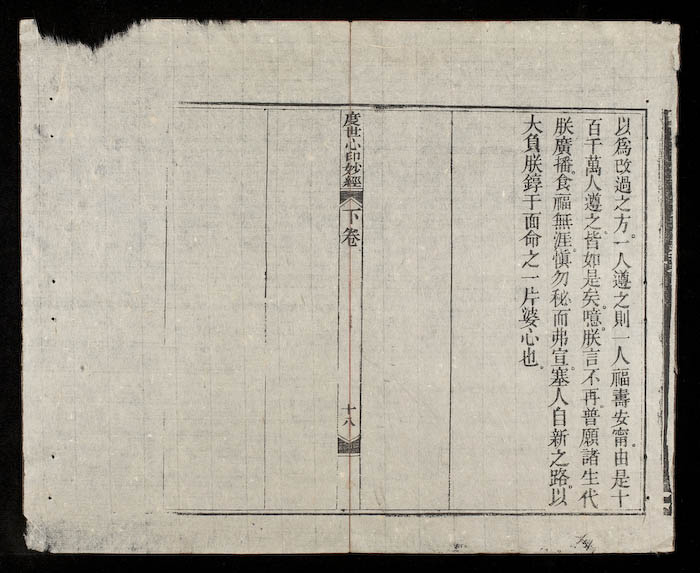 以為改過之方。一人遵之則一人福壽安甯。由是十
百千萬人遵之。皆如是矣。噫。朕言不再。普願諸生代
朕廣播。食福無涯。慎勿秘而弗宣。塞人自新之路。以
大負朕錞于面命之一片婆心也。
度世心印妙經
下卷
十八